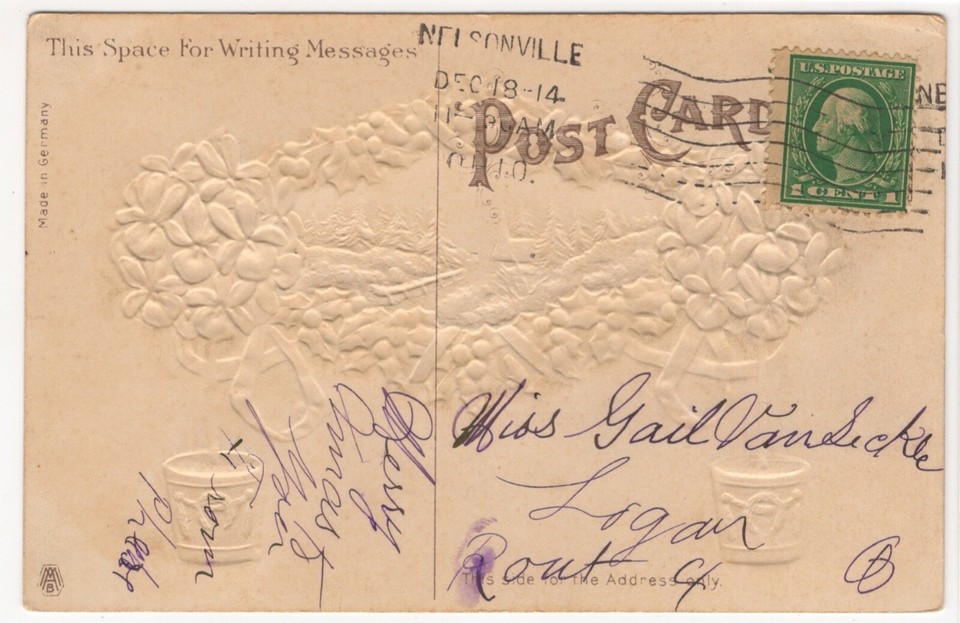 This Space For Writing Messages
NELSONVILLE
DEC 18-14
AM
OHIO.
POST CARD
U.S.POSTAGE
1 CENT 1
NE
Made in Germany
Merry
Xmas to
You
from
Miss Gail VanSickle
Logan
Rout 4
O
This side for the Address only.
MAB